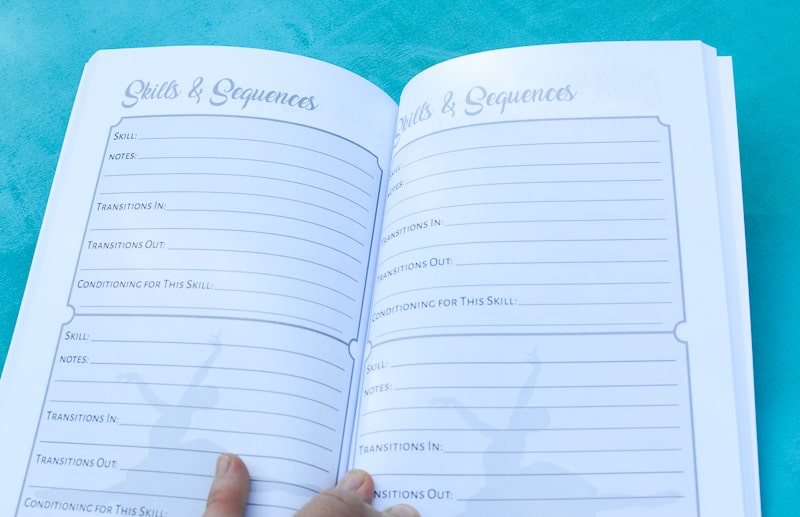 Skills & Sequences
SKILL:
NOTES:
TRANSITIONS IN:
TRANSITIONS OUT:
CONDITIONING FOR THIS SKILL:
SKILL:
NOTES:
TRANSITIONS IN:
TRANSITIONS OUT:
CONDITIONING FOR THIS SKILL:
Skills & Sequences
SKILL:
NOTES:
TRANSITIONS IN:
TRANSITIONS OUT:
CONDITIONING FOR THIS SKILL:
SKILL:
NOTES:
TRANSITIONS IN:
TRANSITIONS OUT: